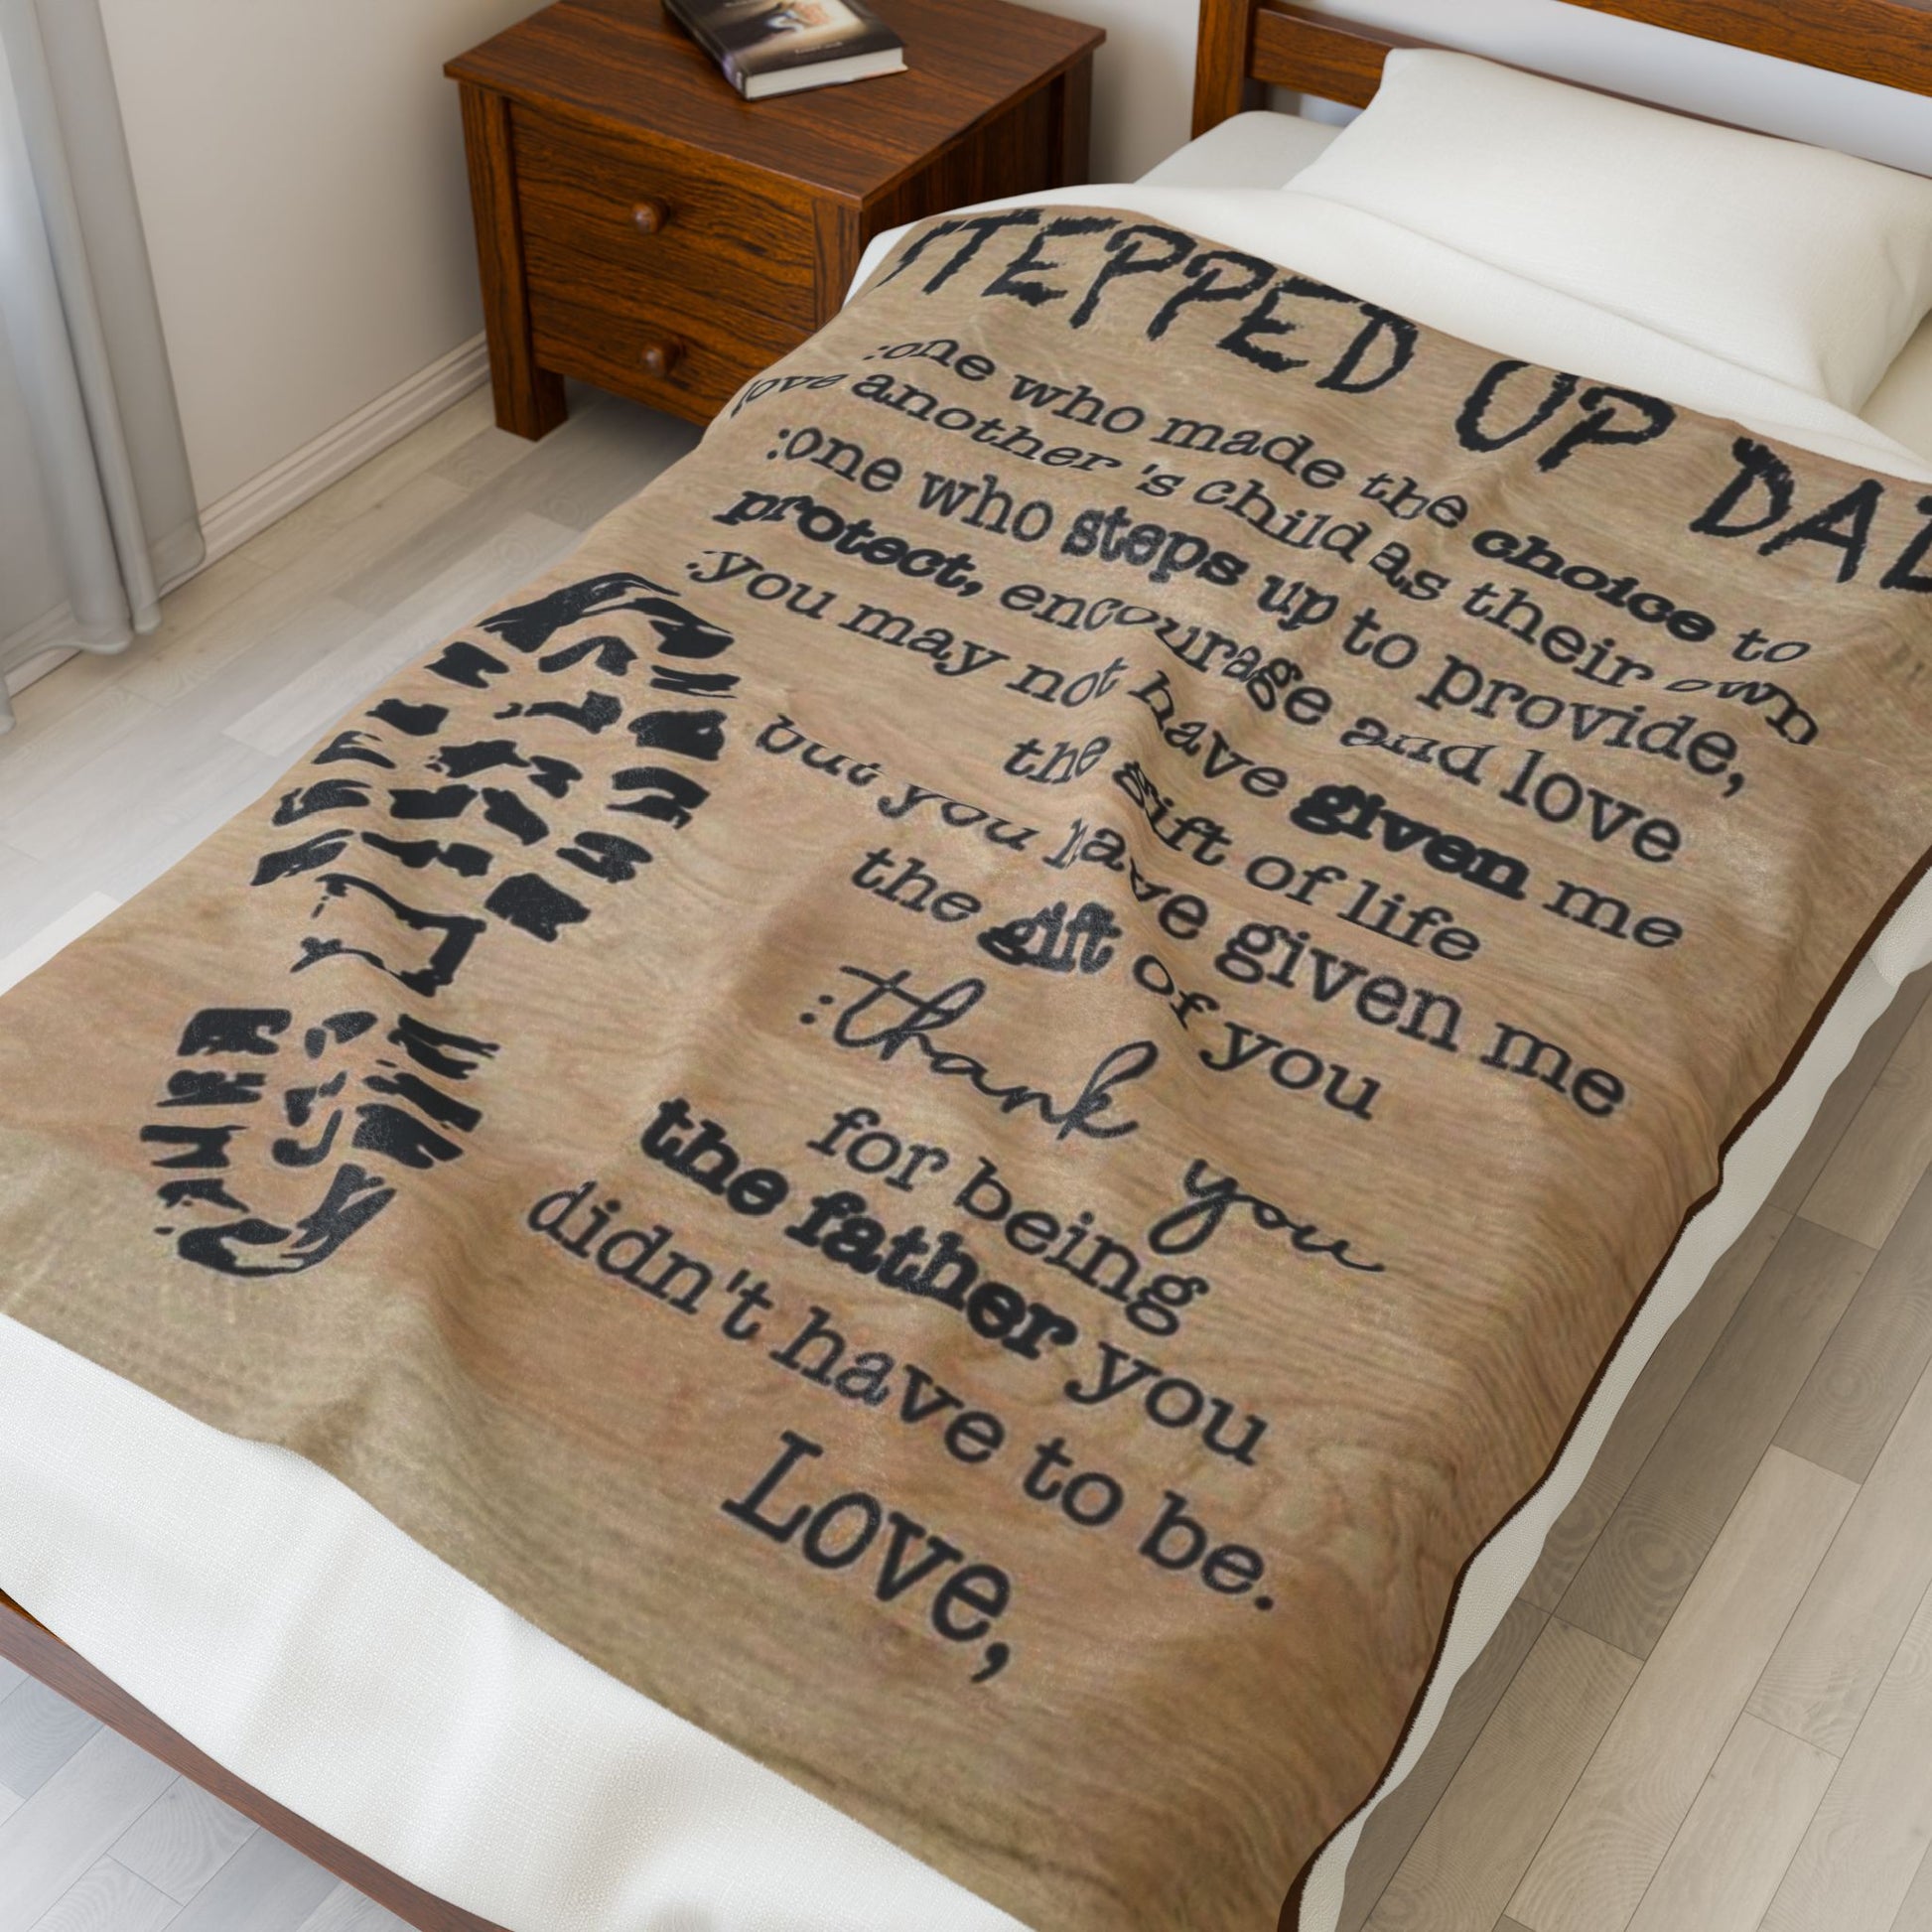 STEPPED UP DAD
:one who made the choice to
love another 's child as their own
:one who steps up to provide,
protect, encourage and love
.you may not have given me
the gift of life
but you have given me
the gift of you
:thank you
for being
the father you
didn't have to be.
Love,